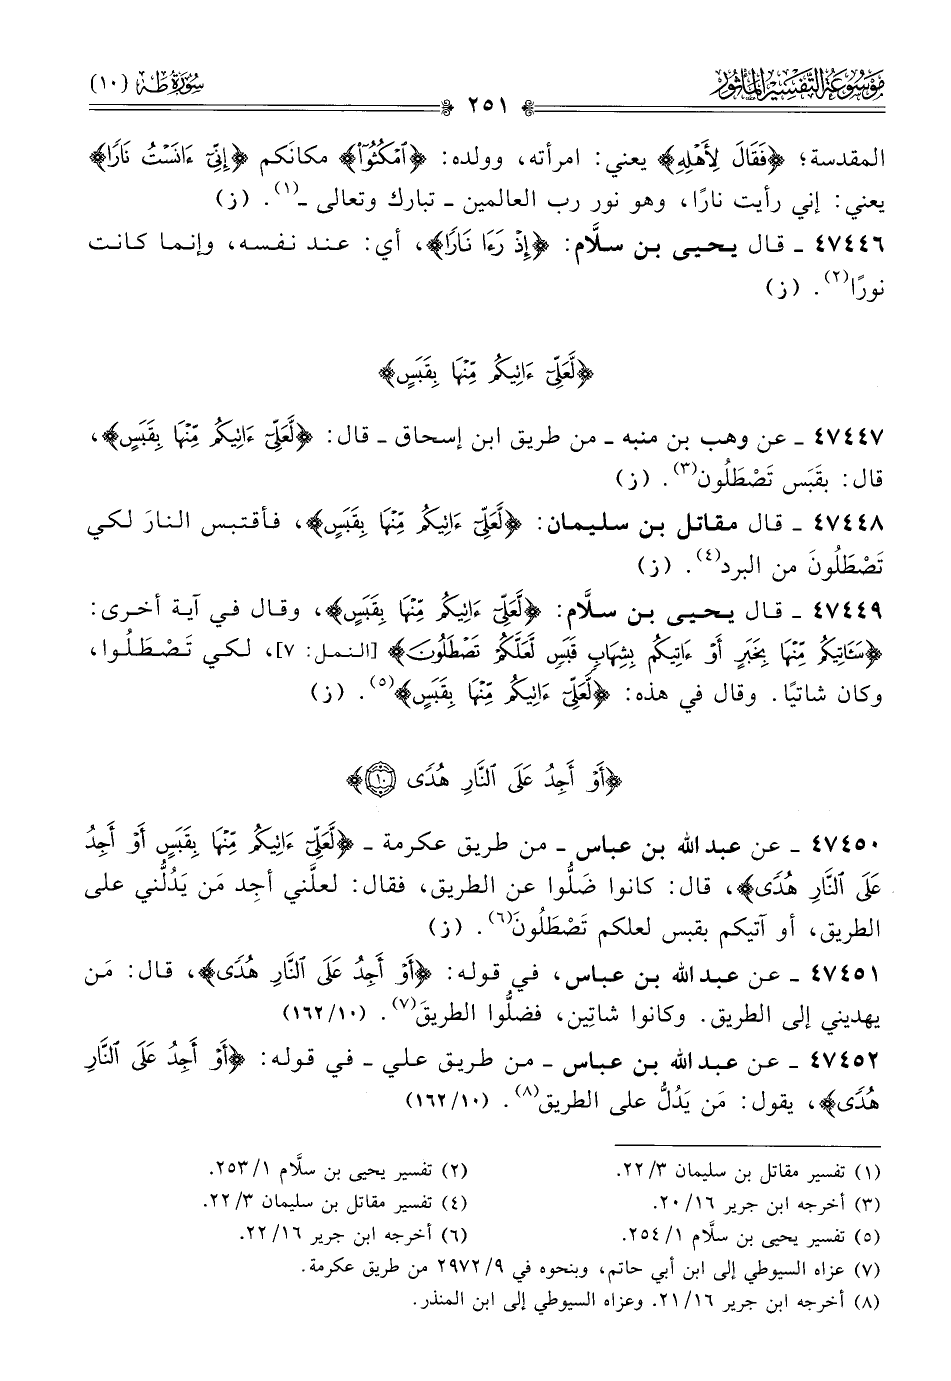 موسوعة التفسير المأثور
سورة طه (١٠)
٢٥١
المقدسة؛ ﴿فَقَالَ لِأَهْلِهِ﴾ يعني: امرأته، وولده: ﴿ٱمْكُثُوٓا۟﴾ مكانَكم ﴿إِنِّىٓ ءَانَسْتُ نَارًا﴾
يعني: إني رأيت نارًا، وهو نور رب العالمين ـ تبارك وتعالى ـ(١). (ز)
٤٧٤٤٦ ـ قال يحيى بن سلَّام: ﴿إِذْ رَءَا نَارًا﴾، أي: عند نفسه، وإنما كانت
نورًا(٢). (ز)
﴿لَّعَلِّىٓ ءَاتِيكُم مِّنْهَا بِقَبَسٍ﴾
٤٧٤٤٧ ـ عن وهب بن منبه ـ من طريق ابن إسحاق ـ قال: ﴿لَّعَلِّىٓ ءَاتِيكُم مِّنْهَا بِقَبَسٍ﴾،
قال: بقَبَس تَصْطَلُون(٣). (ز)
٤٧٤٤٨ ـ قال مقاتل بن سليمان: ﴿لَّعَلِّىٓ ءَاتِيكُم مِّنْهَا بِقَبَسٍ﴾، فأقتبس النارَ لكي
تَصْطَلُونَ من البرد(٤). (ز)
٤٧٤٤٩ ـ قال يحيى بن سلَّام: ﴿لَّعَلِّىٓ ءَاتِيكُم مِّنْهَا بِقَبَسٍ﴾، وقال في آية أخرى:
﴿سَـَٔاتِيكُم مِّنْهَا بِخَبَرٍ أَوْ ءَاتِيكُم بِشِهَابٍ قَبَسٍ لَّعَلَّكُمْ تَصْطَلُونَ﴾ [النمل: ٧]، لكي تَصْطَلُوا،
وكان شاتيًا. وقال في هذه: ﴿لَّعَلِّىٓ ءَاتِيكُم مِّنْهَا بِقَبَسٍ﴾(٥). (ز)
﴿أَوْ أَجِدُ عَلَى ٱلنَّارِ هُدًى ١٠﴾
٤٧٤٥٠ ـ عن عبد الله بن عباس ـ من طريق عكرمة ـ ﴿لَّعَلِّىٓ ءَاتِيكُم مِّنْهَا بِقَبَسٍ أَوْ أَجِدُ
عَلَى ٱلنَّارِ هُدًى﴾، قال: كانوا ضَلُّوا عن الطريق، فقال: لعلَّني أجِد مَن يَدُلُّني على
الطريق، أو آتيكم بقبس لعلكم تَصْطَلُونَ(٦). (ز)
٤٧٤٥١ ـ عن عبد الله بن عباس، في قوله: ﴿أَوْ أَجِدُ عَلَى ٱلنَّارِ هُدًى﴾، قال: مَن
يهديني إلى الطريق. وكانوا شاتِين، فضلُّوا الطريقَ(٧). (١٠/١٦٢)
٤٧٤٥٢ ـ عن عبد الله بن عباس ـ من طريق علي ـ في قوله: ﴿أَوْ أَجِدُ عَلَى ٱلنَّارِ
هُدًى﴾، يقول: مَن يَدُلُّ على الطريق(٨). (١٠/١٦٢)
(١) تفسير مقاتل بن سليمان ٣/٢٢.
(٢) تفسير يحيى بن سلَّام ١/٢٥٣.
(٣) أخرجه ابن جرير ١٦/٢٠.
(٤) تفسير مقاتل بن سليمان ٣/٢٢.
(٥) تفسير يحيى بن سلَّام ١/٢٥٤.
(٦) أخرجه ابن جرير ١٦/٢٢.
(٧) عزاه السيوطي إلى ابن أبي حاتم، وبنحوه في ٩/٢٩٧٢ من طريق عكرمة.
(٨) أخرجه ابن جرير ١٦/٢١. وعزاه السيوطي إلى ابن المنذر.